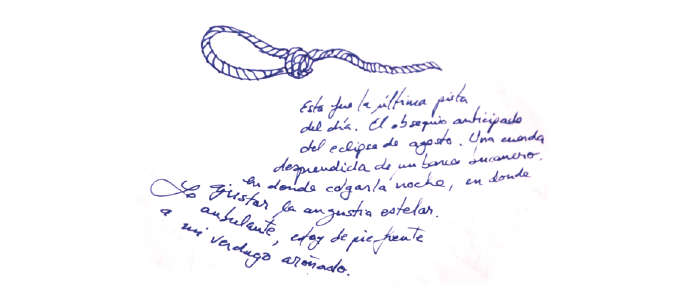 Esta fue la última pista
del día. El obsequio anticipado
del eclipse de agosto. Una cuerda
desprendida de un barco bucanero.
en donde colgar la noche, en donde
ajustar la angustia estelar.
ambulante, estoy de pie frente
a mi verdugo